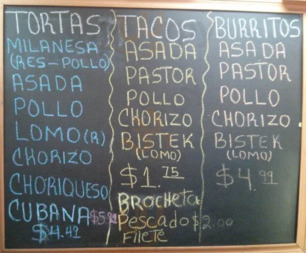 TORTAS
MILANESA
(RES-POLLO)
ASADA
POLLO
LOMO(R)
CHORIZO
CHORIQUESO
CUBANA $5.99
$4.49
TACOS
ASADA
PASTOR
POLLO
CHORIZO
BISTEK
(LOMO)
$1.75
BROCHETA
PESCADO $2.00
FILETE
BURRITOS
ASADA
PASTOR
POLLO
CHORIZO
BISTEK
(LOMO)
$4.99